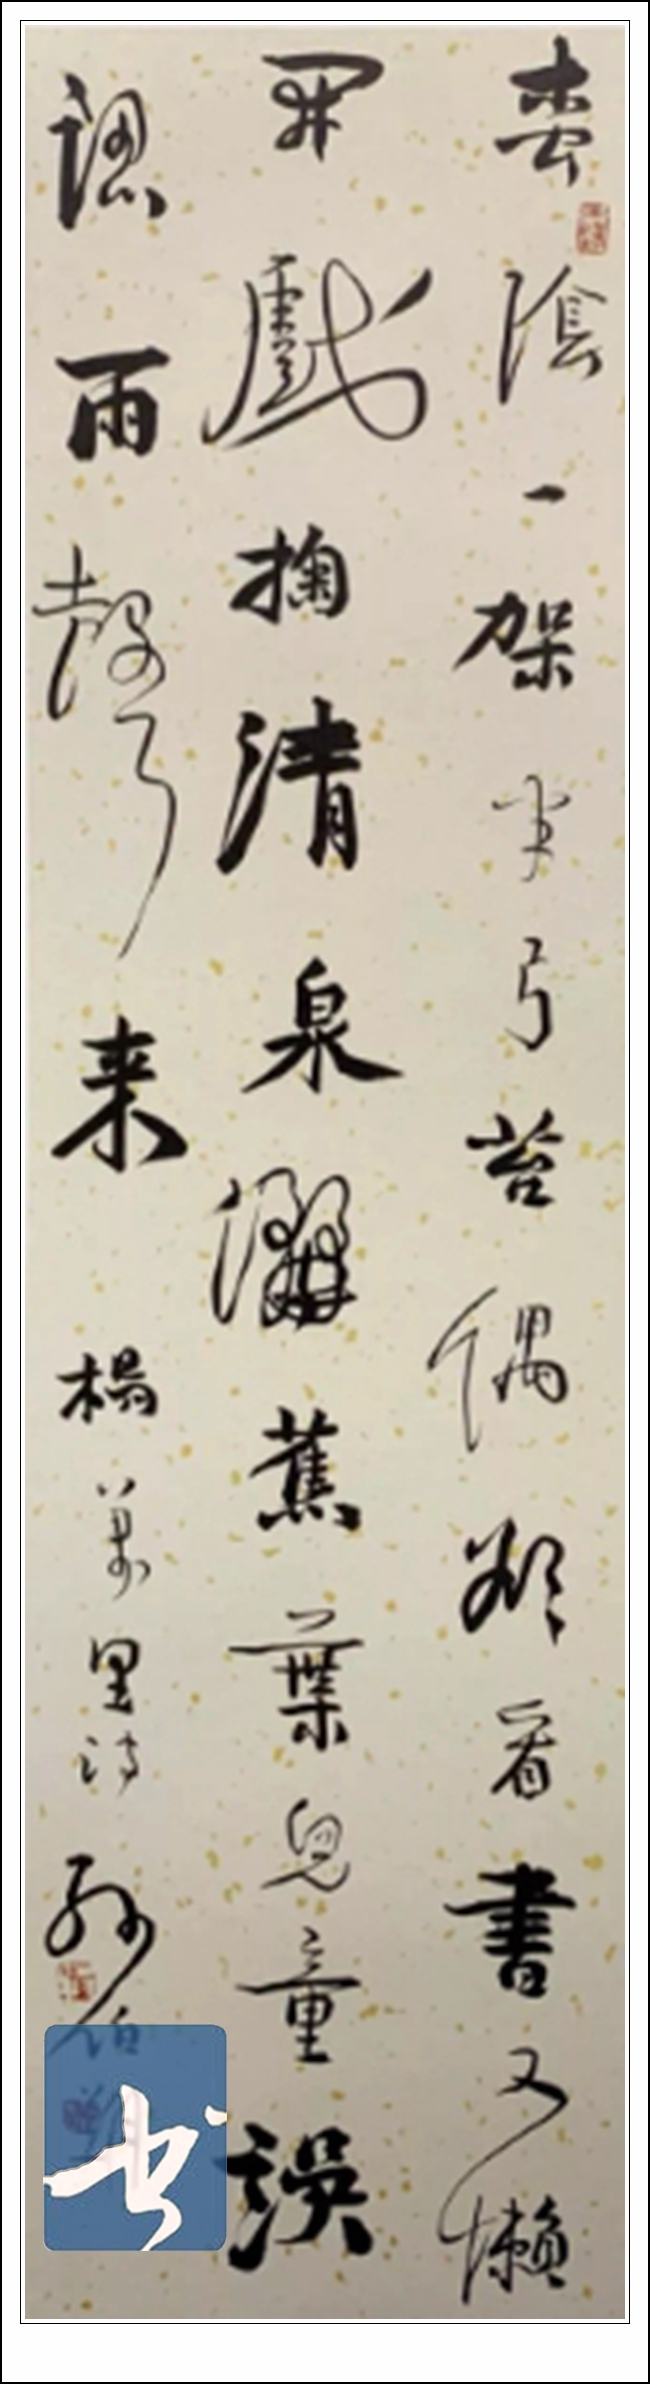 枩陰一架半弓苔偶欲看書又懶
開戲掬清泉灑蕉葉兒童誤
認雨聲来楊萬里詩
书